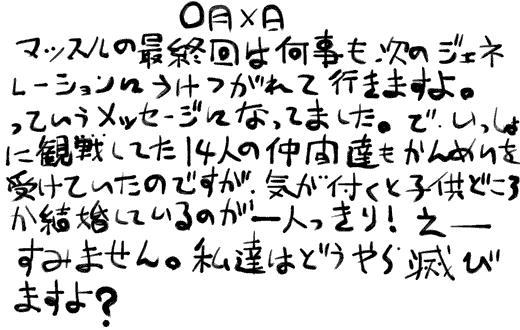 〇月×日
マッスルの最終回は何事も、次のジェネ
レーションにうけつがれて行きますよ。
っていうメッセージになってました。で、いっしょ
に観戦してた14人の仲間達もかんめいを
受けていたのですが、気が付くと子供どころ
か結婚しているのが一人っきり!えー
すみません。私達はどうやら滅び
ますよ?